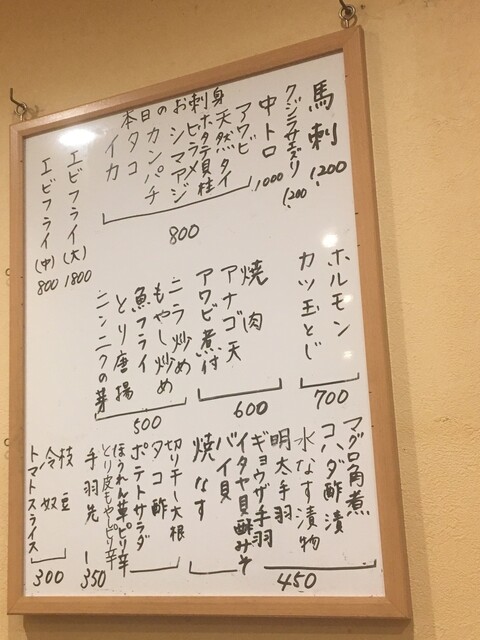 馬刺
1200
クジラサエズリ
1200
中トロ
1000
本日のお刺身
アワビ
天然タイ
ホタテ貝柱
ヒラメ
シマアジ
カンパチ
タコ
イカ
800
エビフライ(大)
1800
エビフライ(中)
800
ホルモン
カツ玉とじ
700
焼肉
アナゴ天
アワビ煮付
600
ニラ炒め
もやし炒め
魚フライ
とり唐揚
ニンニクの芽
500
マグロ角煮
コハダ酢漬
水なす漬物
明太手羽
ギョウザ手羽
イタヤ貝酢みそ
バイ貝
焼なす
450
切り干し大根
タコ酢
ポテトサラダ
ほうれん草ピリ辛
とり皮もやしピリ辛
手羽先
350
枝豆
冷奴
トマトスライス
300